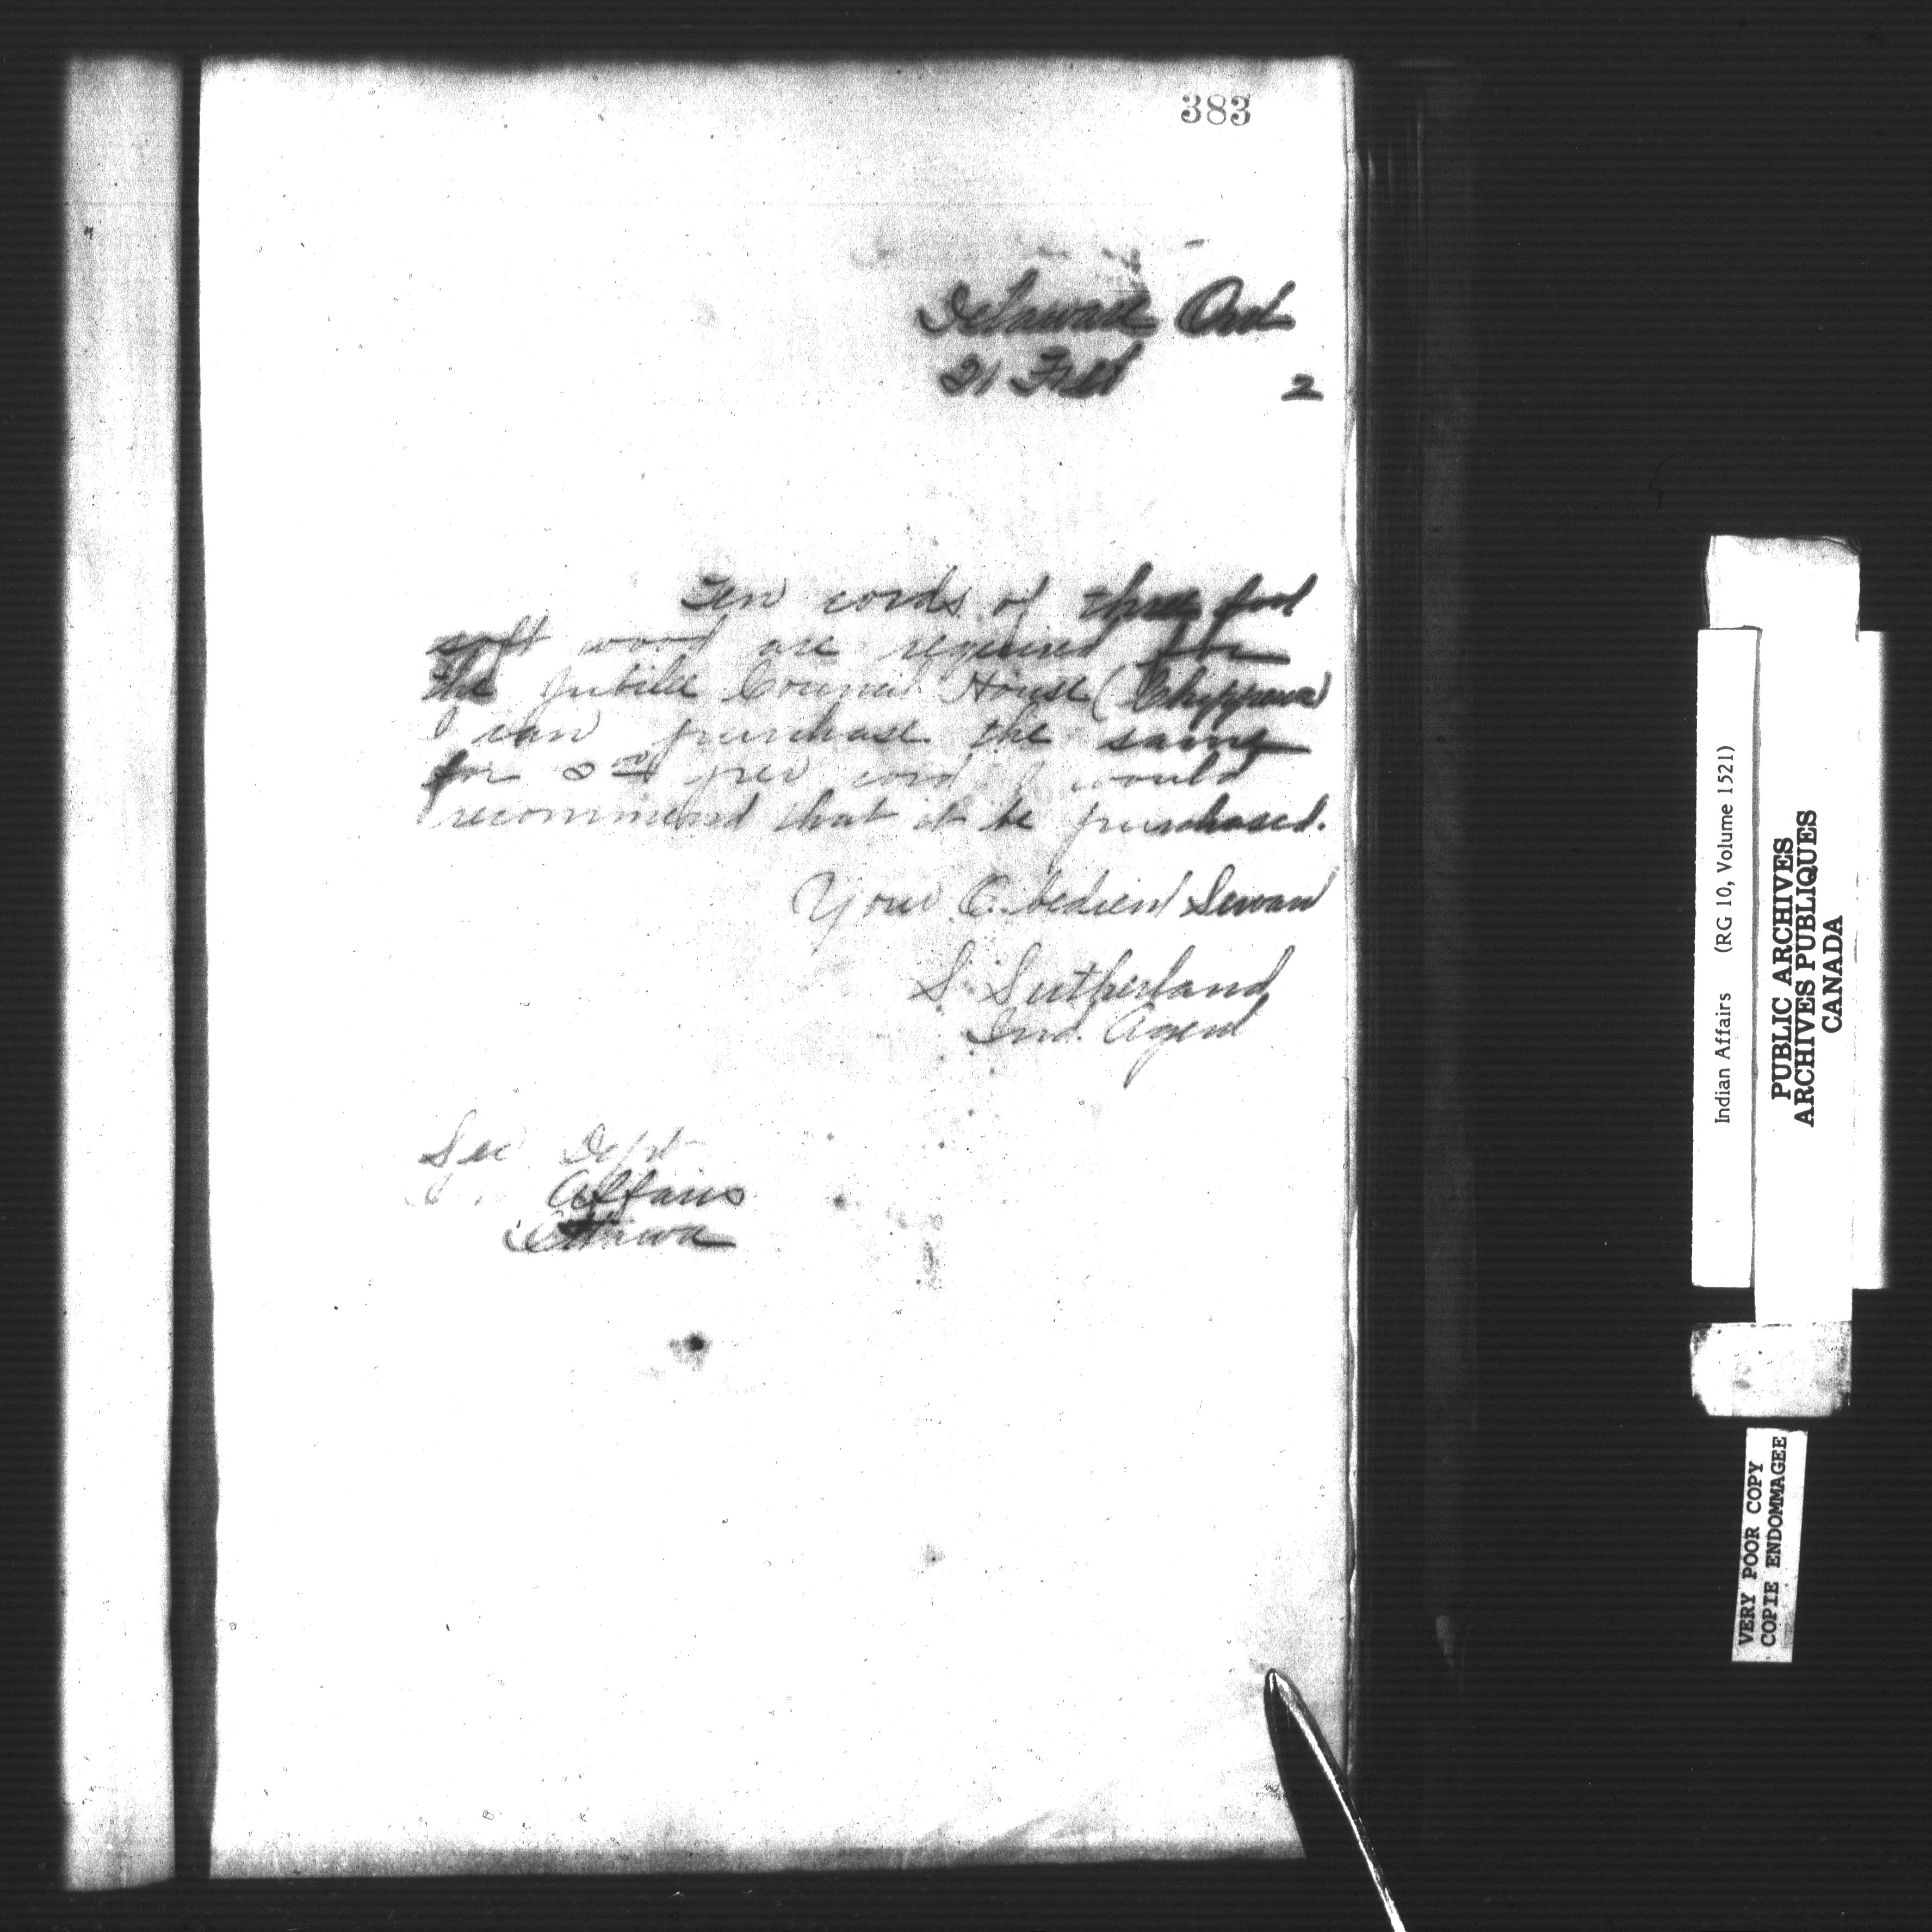 383
Delaware Ont
21 Feb 2
Ten cords of three foot
soft wood are required for
the Jubilee Council House (Chippewa)
I can purchase the same
for per cord I would
recommend that it be purchased.
Your Obedient Servan
S. Sutherland
Ind. Agent
Sec Dept
Affairs
Ottawa
Indian Affairs (RG 10, Volume 1521)
PUBLIC ARCHIVES
ARCHIVES PUBLIQUES
CANADA
VERY POOR COPY
COPIE ENDOMMAGEE